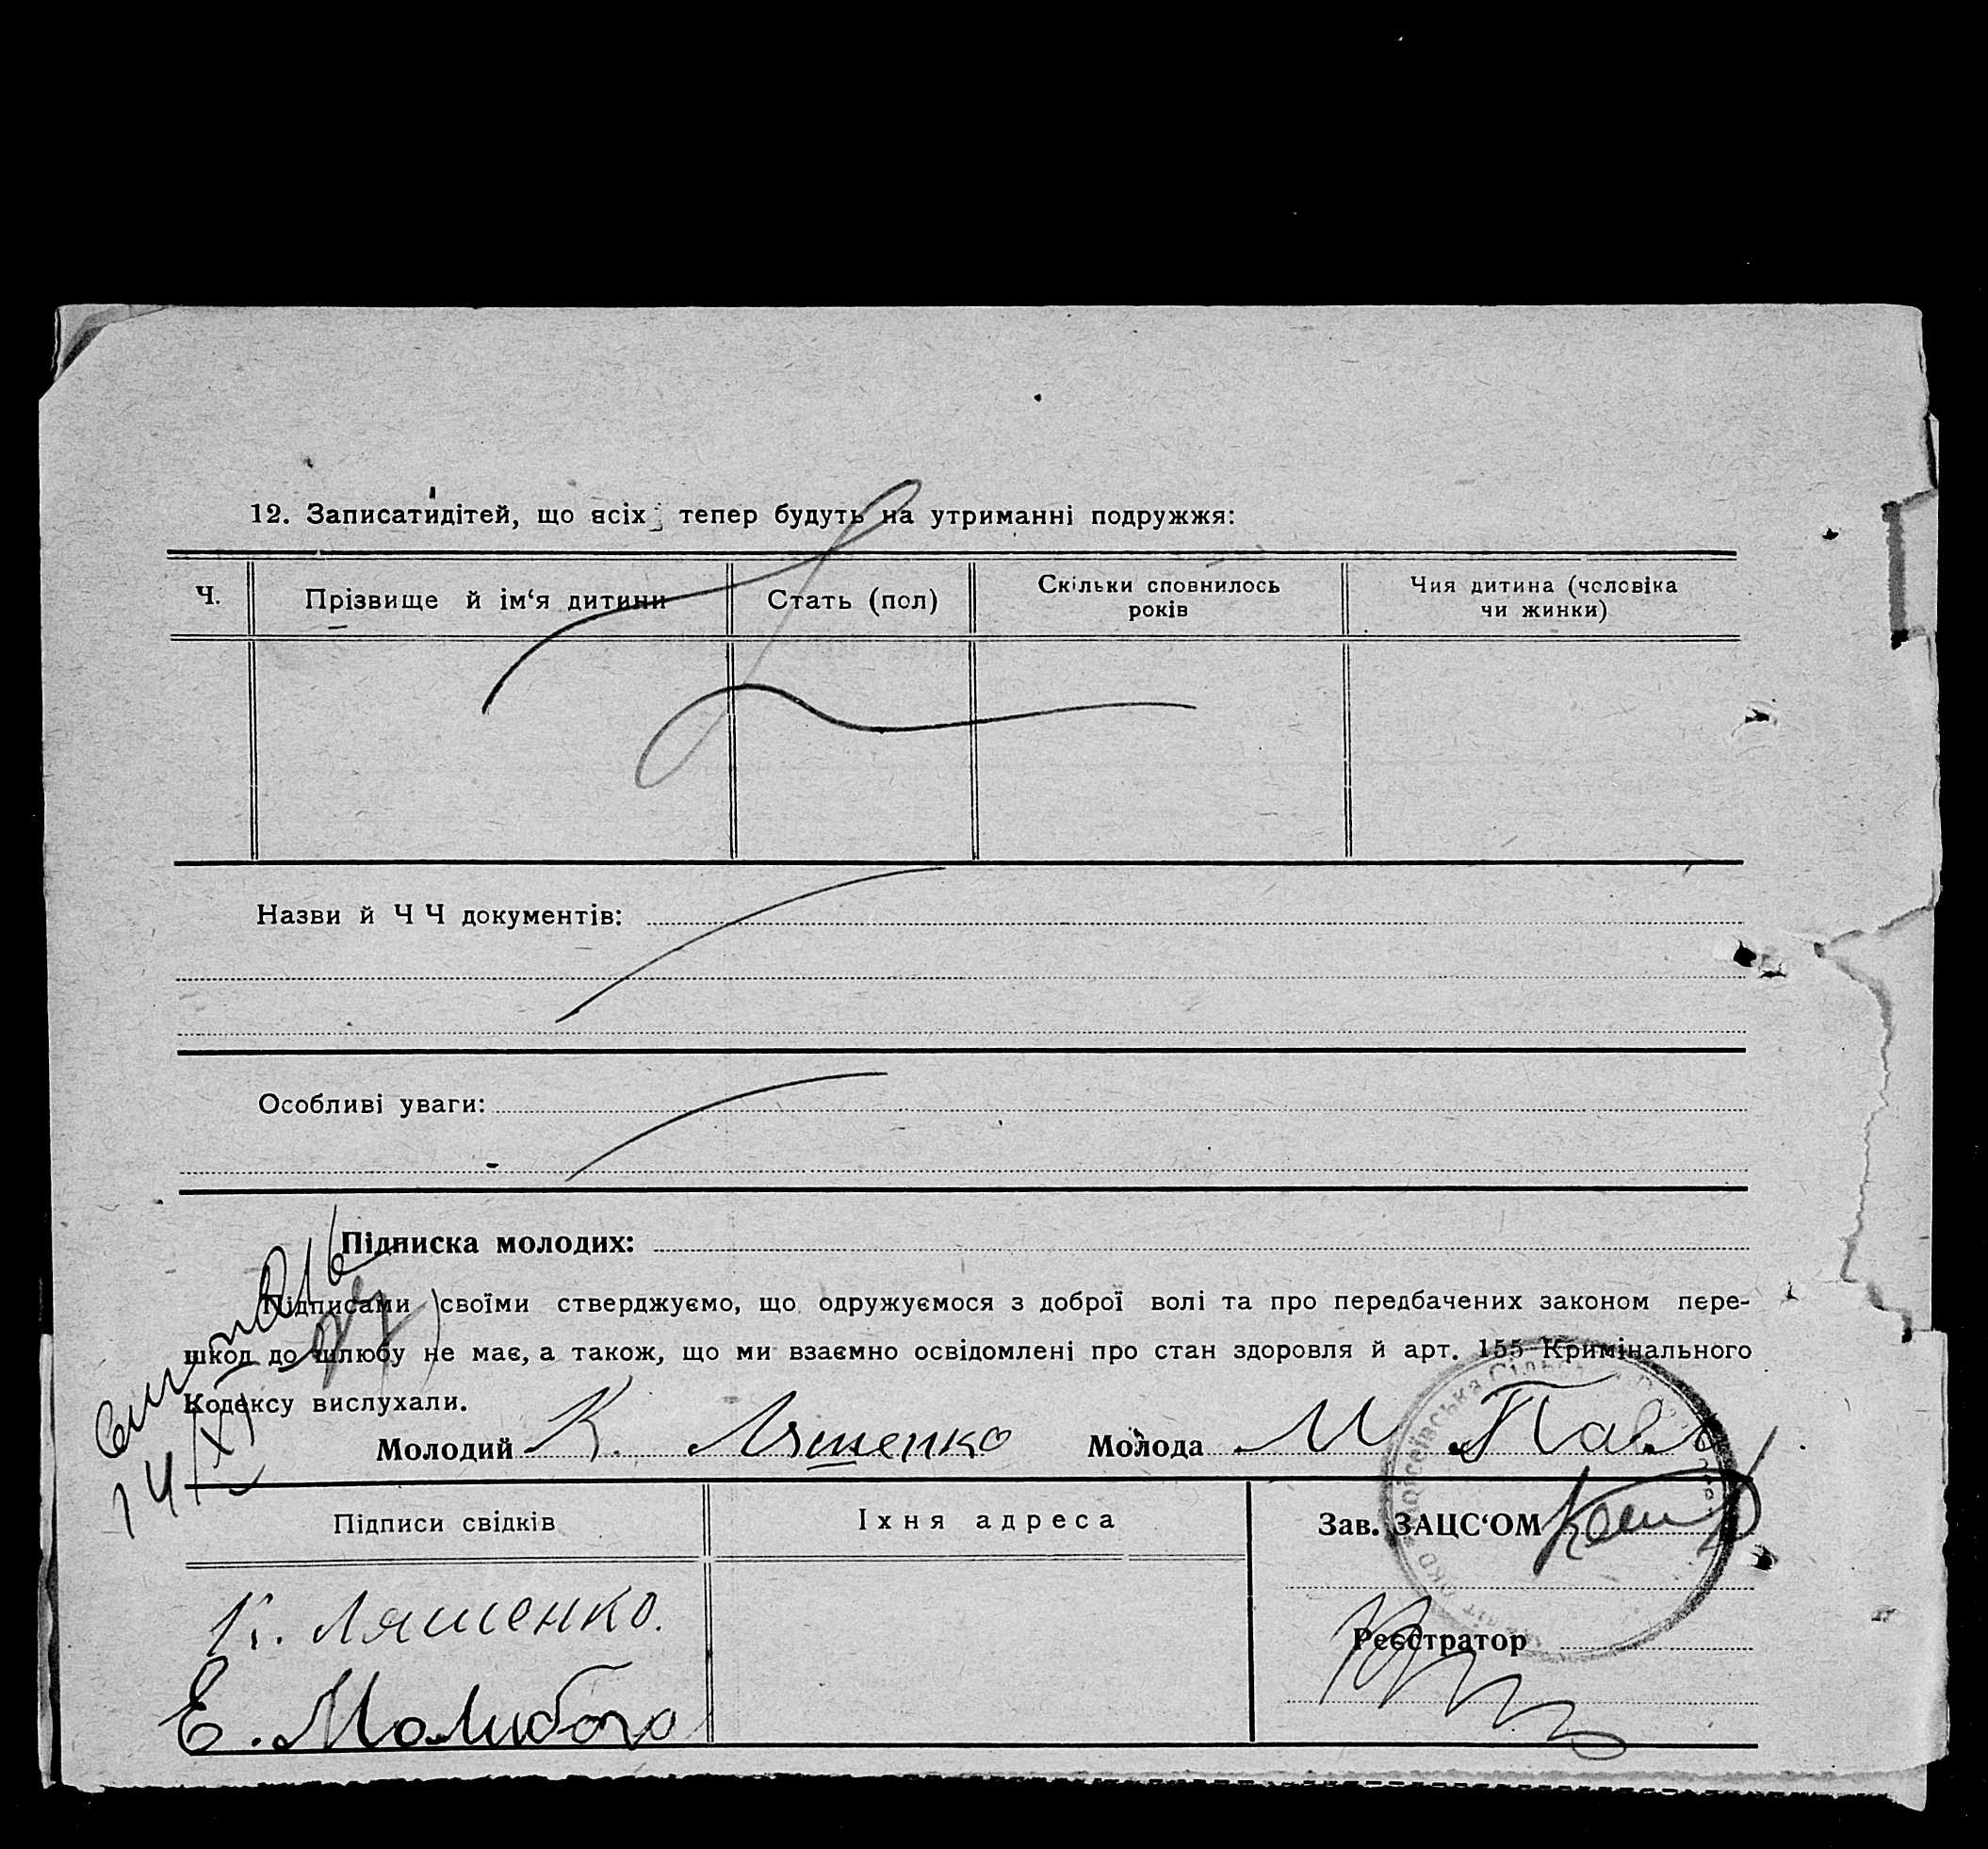 12. Записатидітей, що всіх тепер будуть на утриманні подружжя:
Ч.
Прізвище й ім‘я дитини
Стать (пол)
Скільки сповнилось
років
Чия дитина (чсловіка
чи жинки)
Назви й Ч Ч документів:
Особливі уваги:
Підписка молодих:
Підписами своїми стверджуємо, що одружуємося з доброї волі та про передбачених законом пере-
шкод до шлюбу не має, а також, що ми взаємно освідомлені про стан здоровля й арт. 155 Кримінального
Кодексу вислухали.
Молодий К. Ляшенко Молода М
14/XI
Підписи свідків
Їхня адреса
Зав. ЗАЦС‘ОМ
К. Ляшенко.
Реєстратор
Е. Молибога